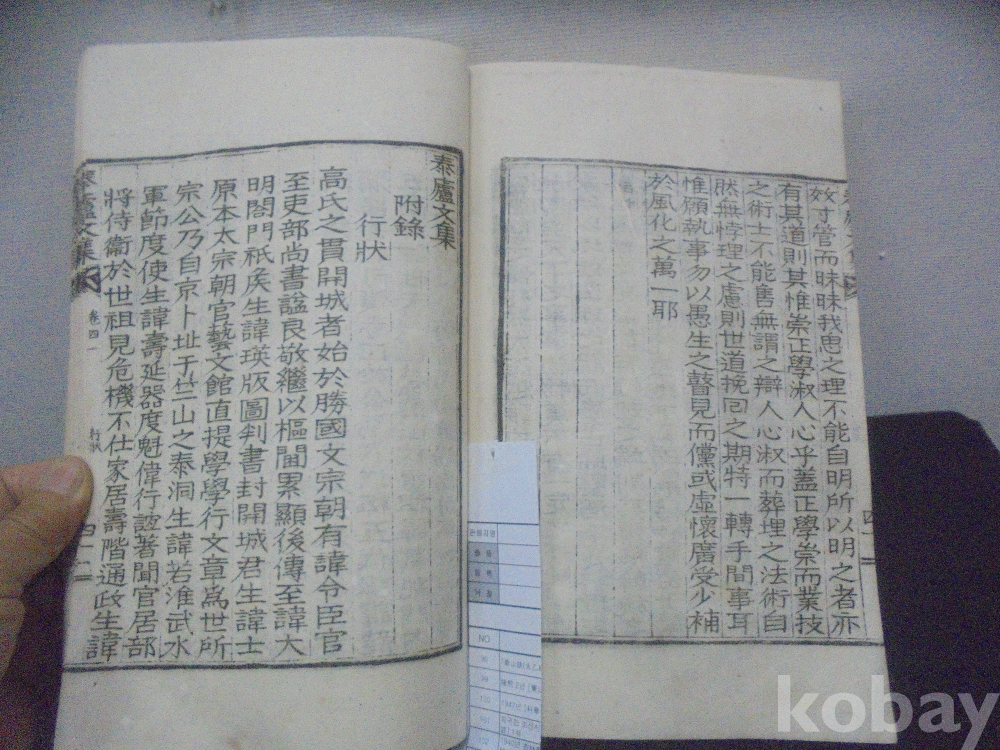 效寸管而昧昧我思之理不能自明所以明之者亦
有其道則其惟崇正學淑人心乎蓋正學崇而業技
之術士不能售無謂之辯人心淑而葬埋之法術自
然無悖理之慮則世道挽回之期特一轉手間事耳
惟願執事勿以愚生之瞽見而儻或虛懷廣受少補
於風化之萬一耶
泰廬文集
附錄
行狀
高氏之貫開城者始於勝國文宗朝有諱令臣官
至吏部尚書諡良敬繼以樞閫累顯後傳至諱大
明閤門祗矦生諱瑛版圖判書封開城君生諱士
原本太宗朝官藝文館直提學學行文章爲世所
宗公乃自京卜址于竺山之泰洞生諱若淮武水
軍節度使生諱壽延器度魁偉行誼著聞官居部
將侍衛於世祖見危機不仕家居壽階通政生諱
泰廬文集
卷四
行狀
NO
kobay